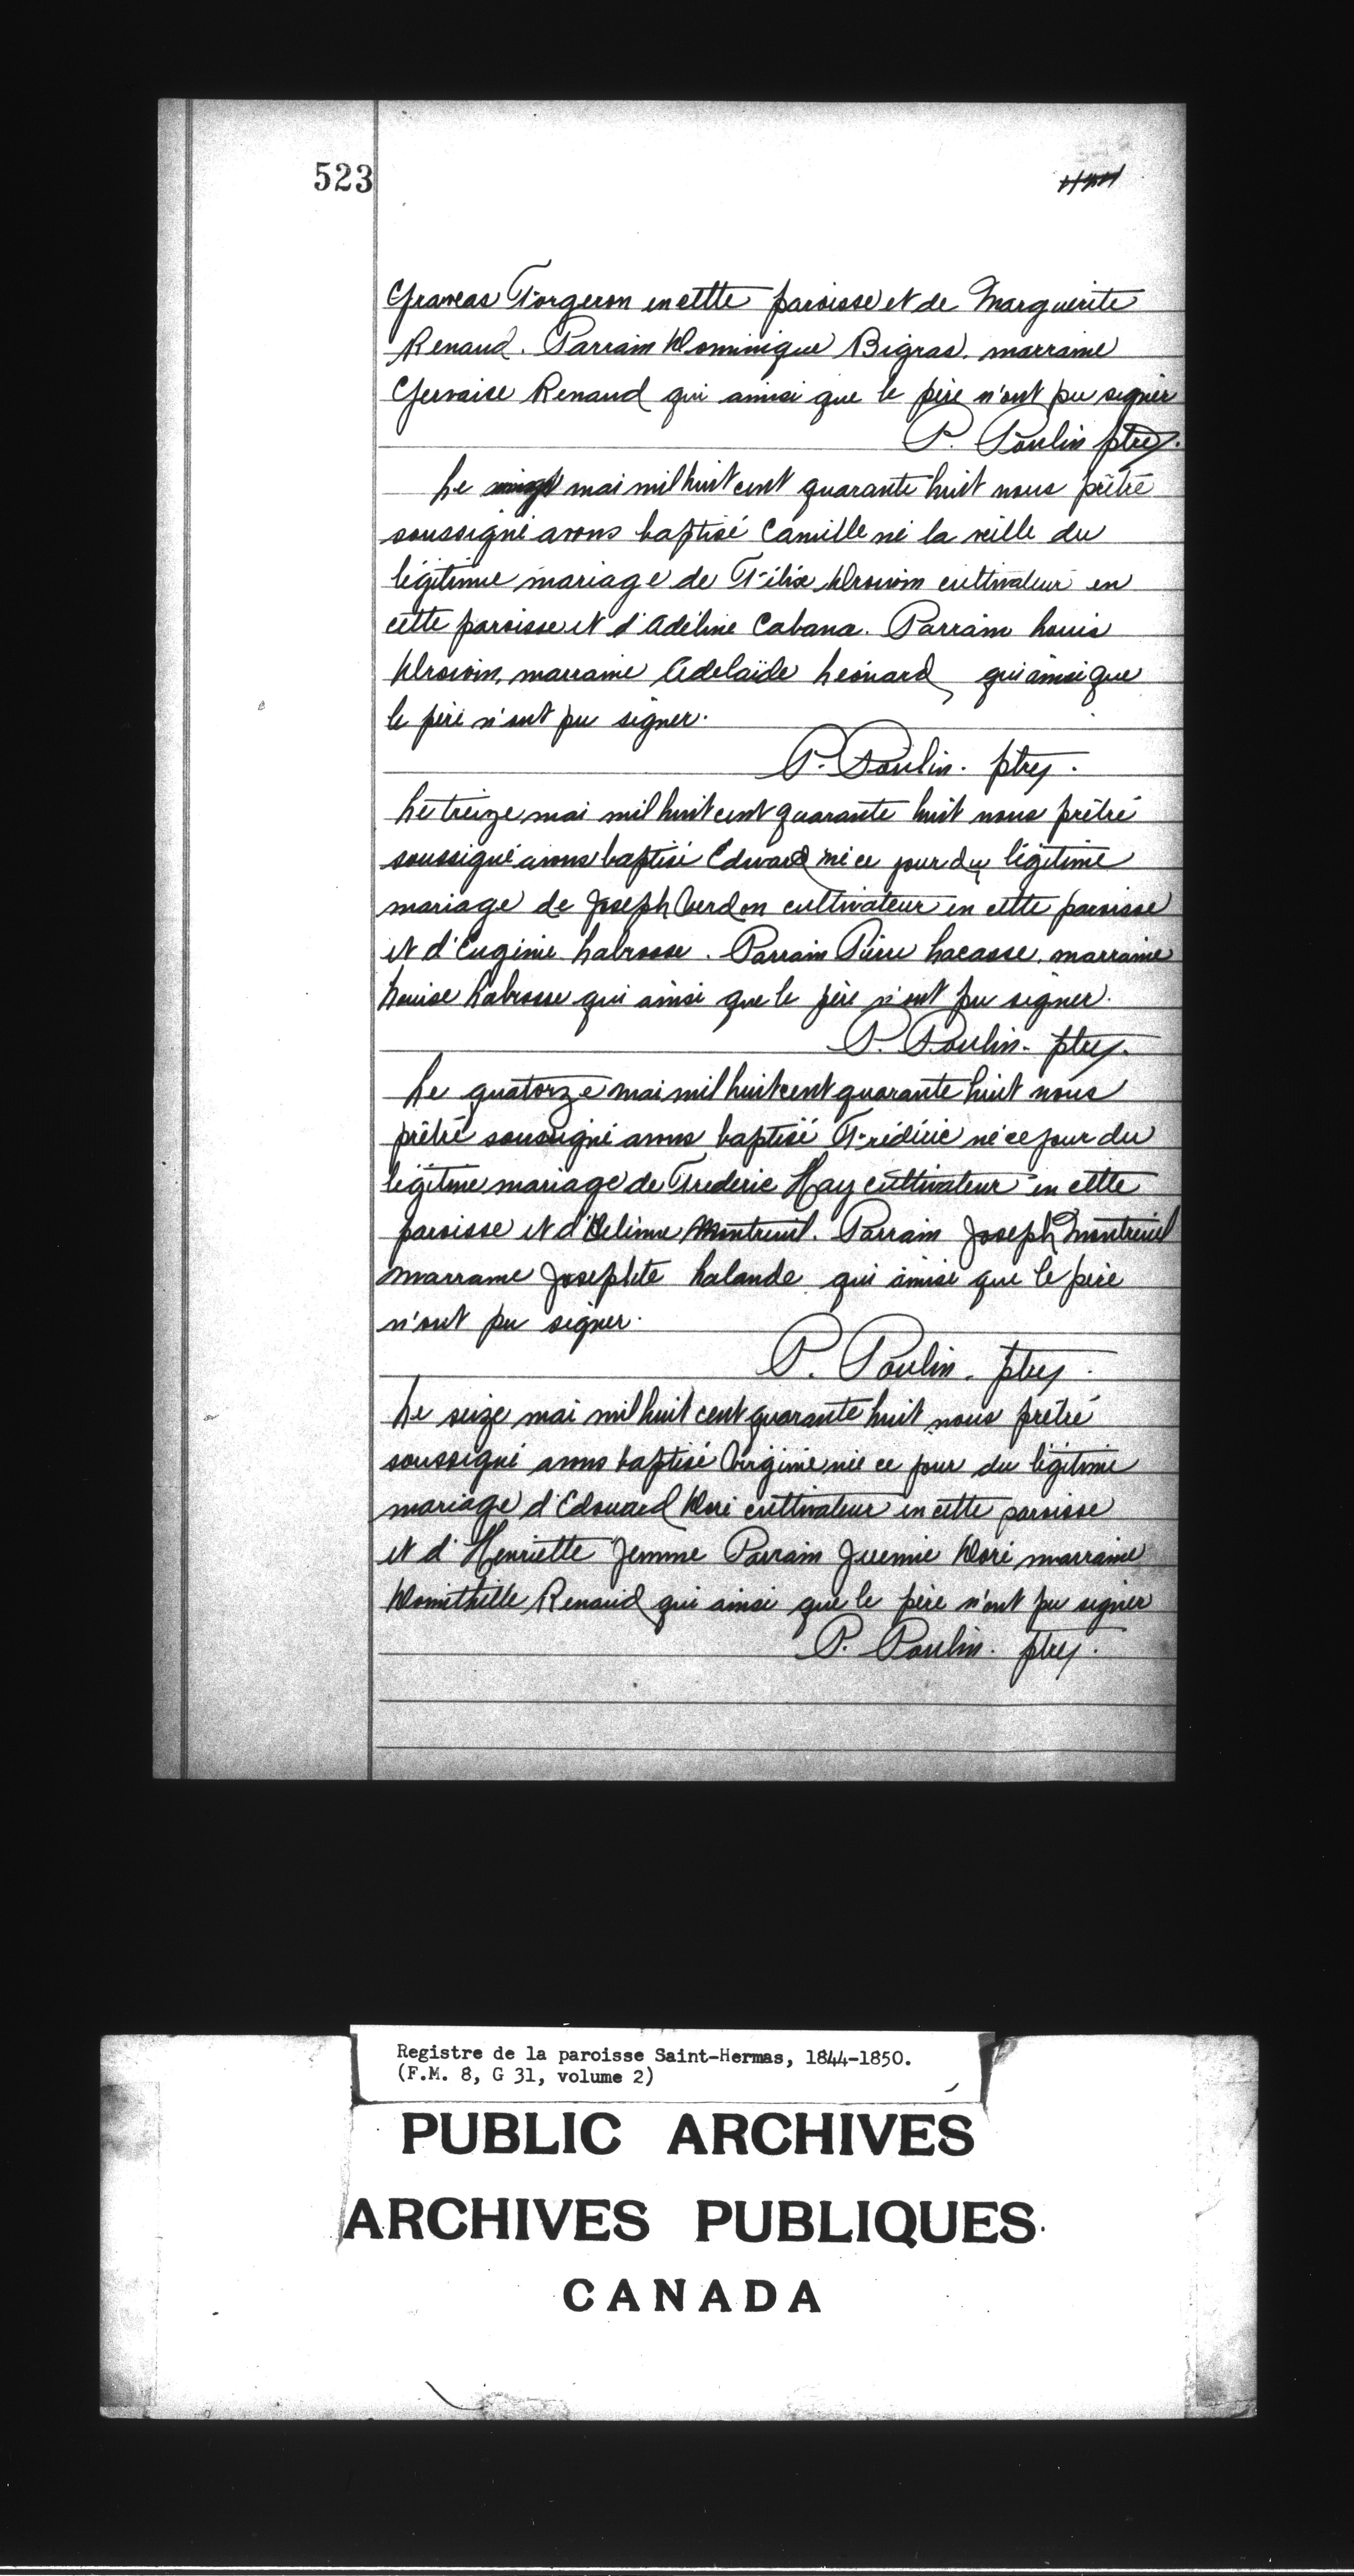 523
Graveas Forgeron en cette paroisse et de Marguerite
Renaud. Parrain Dominique Bigras. marraine
Gervaise Renaud qui ainsi que le père n'ont pu signer
P. Poulin ptre.
Le mai mil huit cent quarante huit nous prêtre
soussigné avons baptisé Camille né la veille du
légitime mariage de Félix Drouin cultivateur en
cette paroisse et d'Adéline Cabana. Parrain Louis
Drouin, marraine Adelaïde Léonard, qui ainsi que
le père n'ont pu signer.
P. Poulin. ptre.
Le treize mai mil huit cent quarante huit nous prêtre
soussigné avons baptisé Edward né ce jour du légitime
mariage de Joseph Verdon cultivateur en cette paroisse
et d'Eugénie Labrosse. Parrain Pierre Lacasse. marraine
Louise Labrosse qui ainsi que le père n'ont pu signer.
P. Poulin. ptre.
Le quatorze mai mil huit cent quarante huit nous
prêtre soussigné avons baptisé Frédéric né ce jour du
légitime mariage de Frederic Hay cultivateur en cette
paroisse et d' Montreuil. Parrain Joseph Montreuil
marraine Josephte Lalande qui ainsi que le père
n'ont pu signer.
P. Poulin. ptre.
Le seize mai mil huit cent quarante huit nous prêtre
soussigné avons baptisé Virginie née ce jour du légitime
mariage d'Edouard Doré cultivateur en cette paroisse
et d'Henriette Jemme Parrain Doré marraine
Domithille Renaud qui ainsi que le père n'ont pu signer
P. Poulin. ptre.
Registre de la paroisse Saint-Hermas, 1844-1850.
(F.M. 8, G 31, volume 2)
PUBLIC ARCHIVES
ARCHIVES PUBLIQUES
CANADA